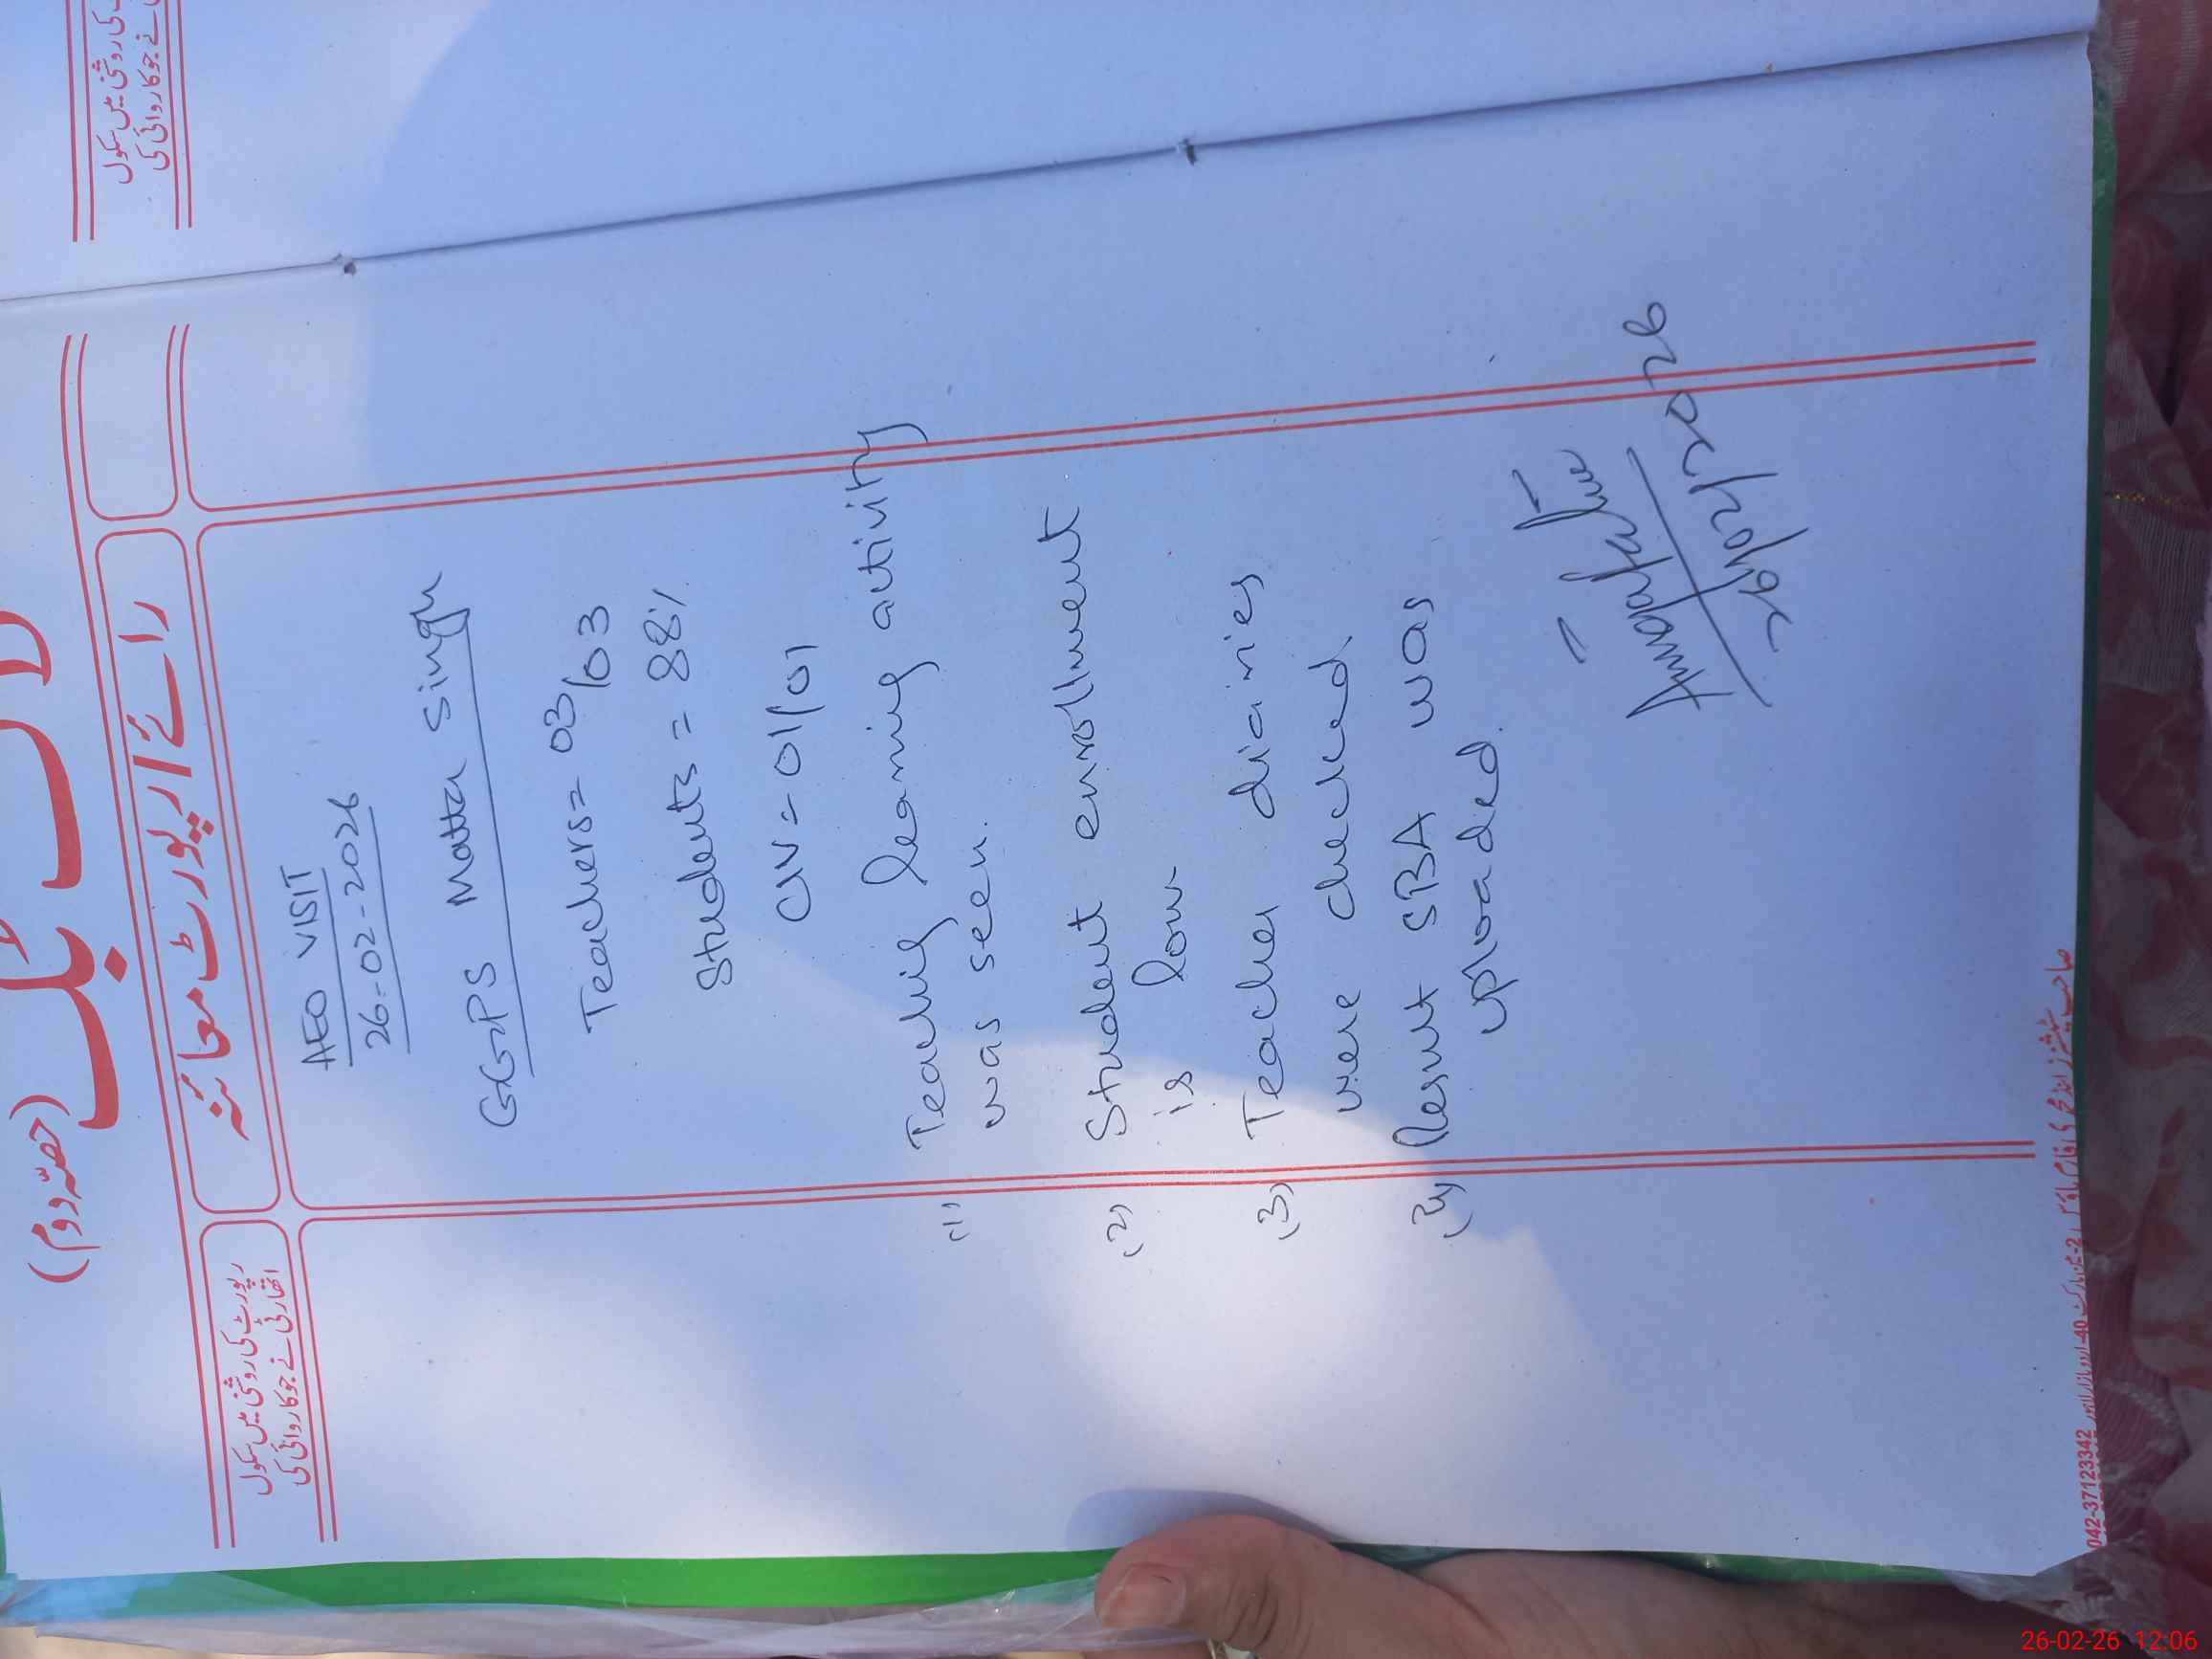 لاگ بک
(حصّہ دوم)
رائے / رپورٹ معائنہ
رپورٹ کی روشنی میں سکول
اتھارٹی نے جو کاروائی کی
کی روشنی میں سکول
نے جو کاروائی کی
AEO VISIT
26-02-2026
GGPS Matta Singh
Teachers = 03/03
Students = 88%
CIV = 01/01
(1) Teaching learning activity
was seen.
(2) Student enrollment
is low
(3) Teacher diaries
were checked.
(4) Result SBA was
uploaded.
26/02/2026
042-37123342
26-02-26 12:06